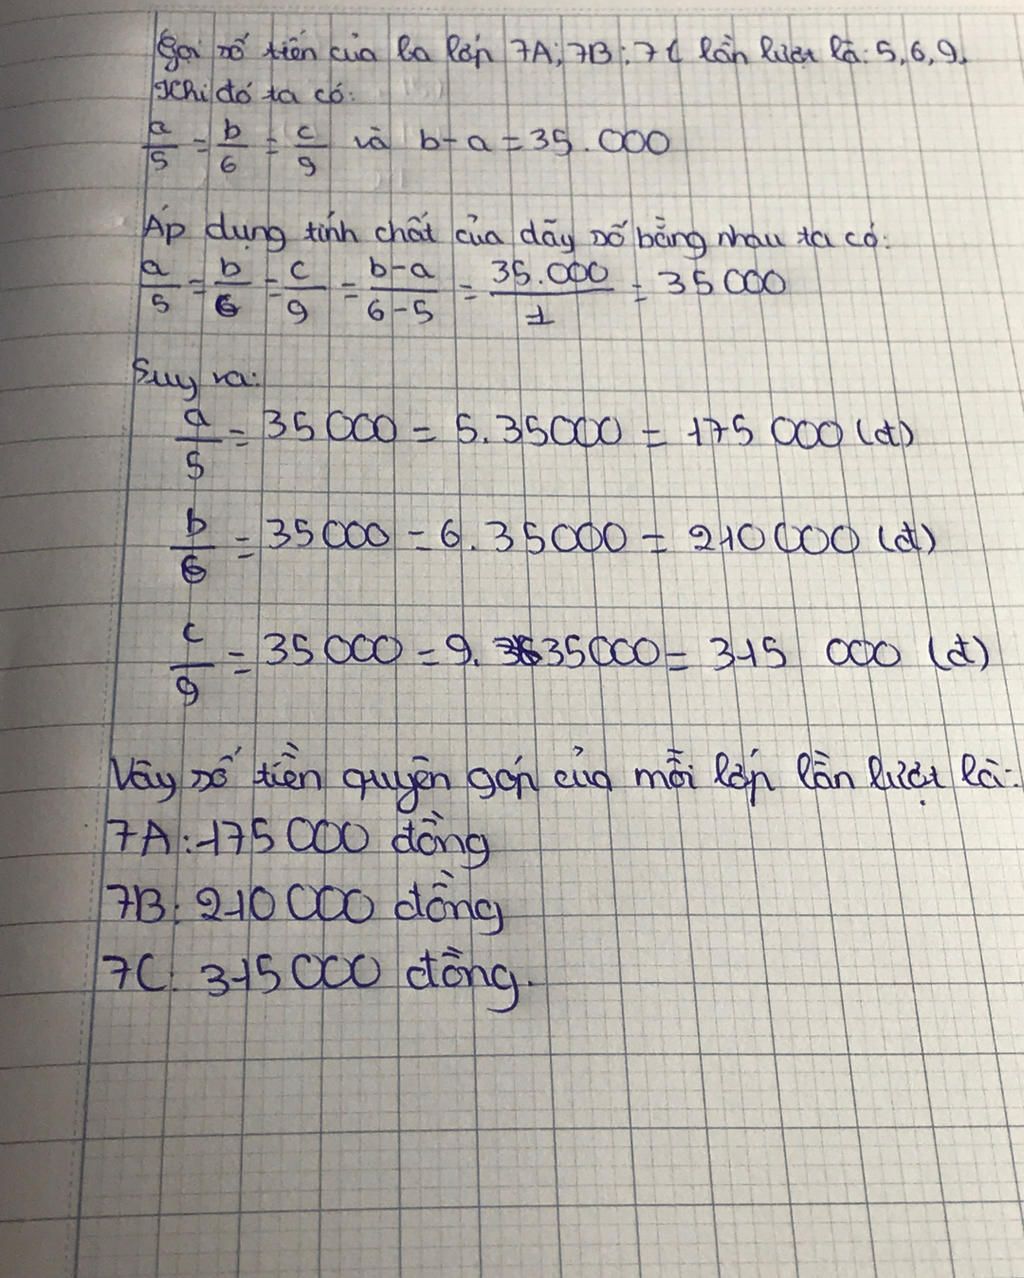 Gọi số tiền của ba lớp 7A; 7B; 7C lần lượt là: 5, 6, 9.
Khi đó ta có:
a/5 = b/6 = c/9 và b - a = 35.000
Áp dụng tính chất của dãy số bằng nhau ta có:
a/5 = b/6 = c/9 = b-a/6-5 = 35.000/1 = 35 000
Suy ra:
a/5 = 35 000 = 5. 35000 = 175 000 (đ)
b/6 = 35 000 = 6. 35000 = 210 000 (đ)
c/9 = 35 000 = 9. 35000 = 315 000 (đ)
Vậy số tiền quyên góp của mỗi lớp lần lượt là:
7A: 175 000 đồng
7B: 210 000 đồng
7C: 315 000 đồng.